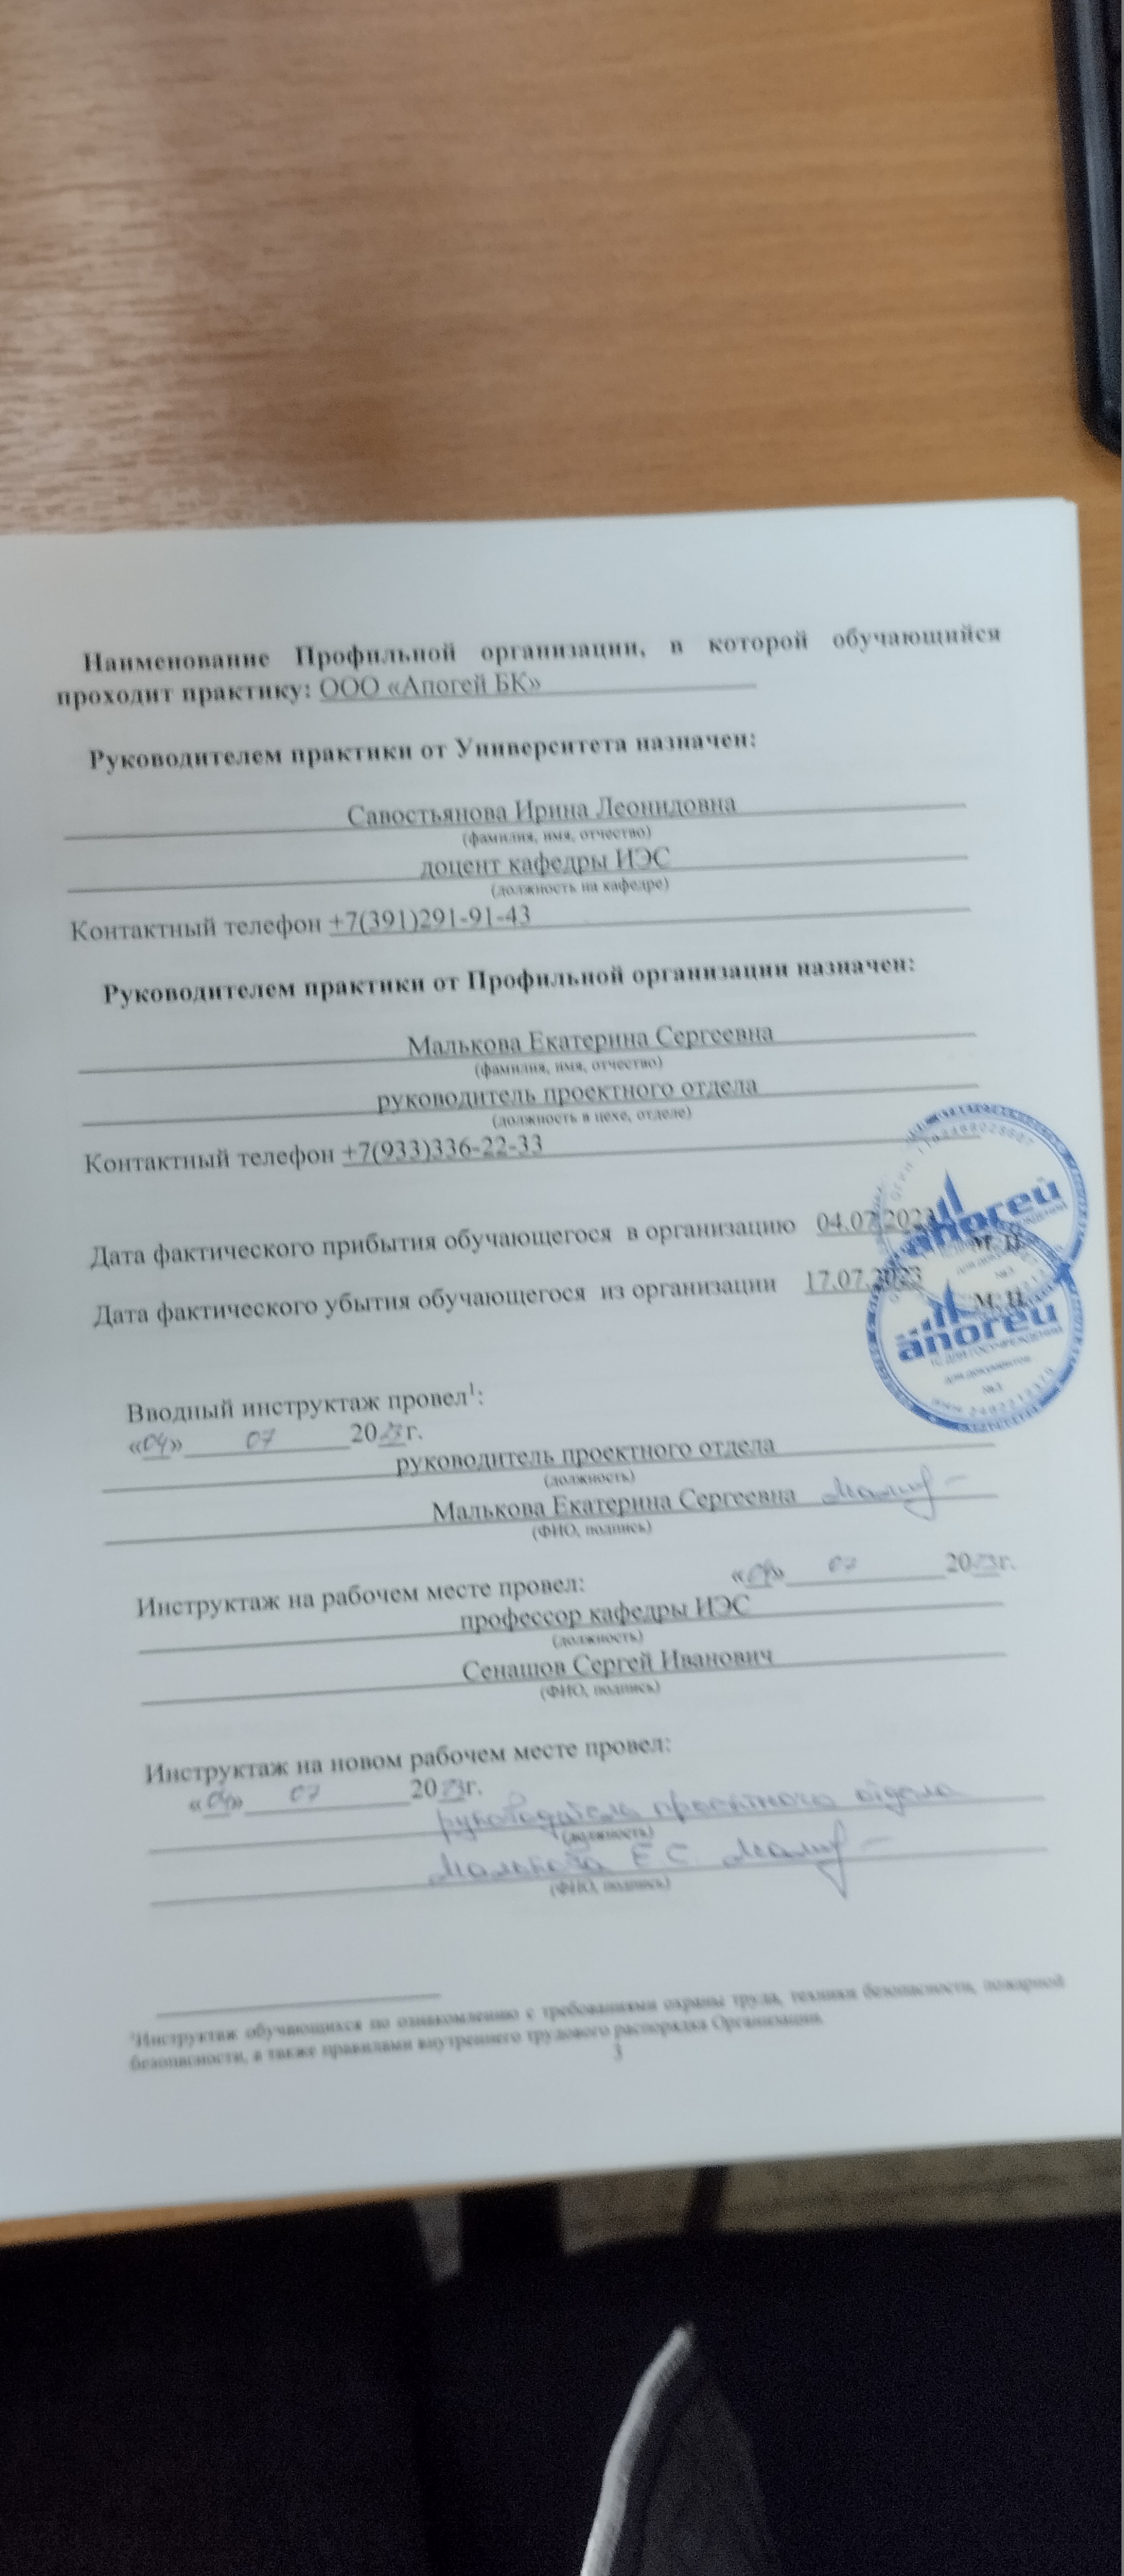 Наименование Профильной организации, в которой обучающийся
проходит практику: ООО «Апогей БК»
Руководителем практики от Университета назначен:
Савостьянова Ирина Леонидовна
(фамилия, имя, отчество)
доцент кафедры ИЭС
(должность на кафедре)
Контактный телефон +7(391)291-91-43
Руководителем практики от Профильной организации назначен:
Малькова Екатерина Сергеевна
(фамилия, имя, отчество)
руководитель проектного отдела
(должность в цехе, отделе)
Контактный телефон +7(933)336-22-33
Дата фактического прибытия обучающегося в организацию 04.07.2023
апогей
М. П.
Дата фактического убытия обучающегося из организации 17.07.2023
М. П.
апогей
1С ДЛЯ ГОСУЧРЕЖДЕНИЙ
для документов
№3
Вводный инструктаж провел¹:
«04» 07 2023г.
руководитель проектного отдела
(должность)
Малькова Екатерина Сергеевна
(ФИО, подпись)
Инструктаж на рабочем месте провел: «04» 07 2023г.
профессор кафедры ИЭС
(должность)
Сенашов Сергей Иванович
(ФИО, подпись)
Инструктаж на новом рабочем месте провел:
«04» 07 2023г.
руководитель проектного отдела
(должность)
Малькова Е С
(ФИО, подпись)
¹Инструктаж обучающихся по ознакомлению с требованиями охраны труда, техники безопасности, пожарной
безопасности, а также правилами внутреннего трудового распорядка Организации.
3